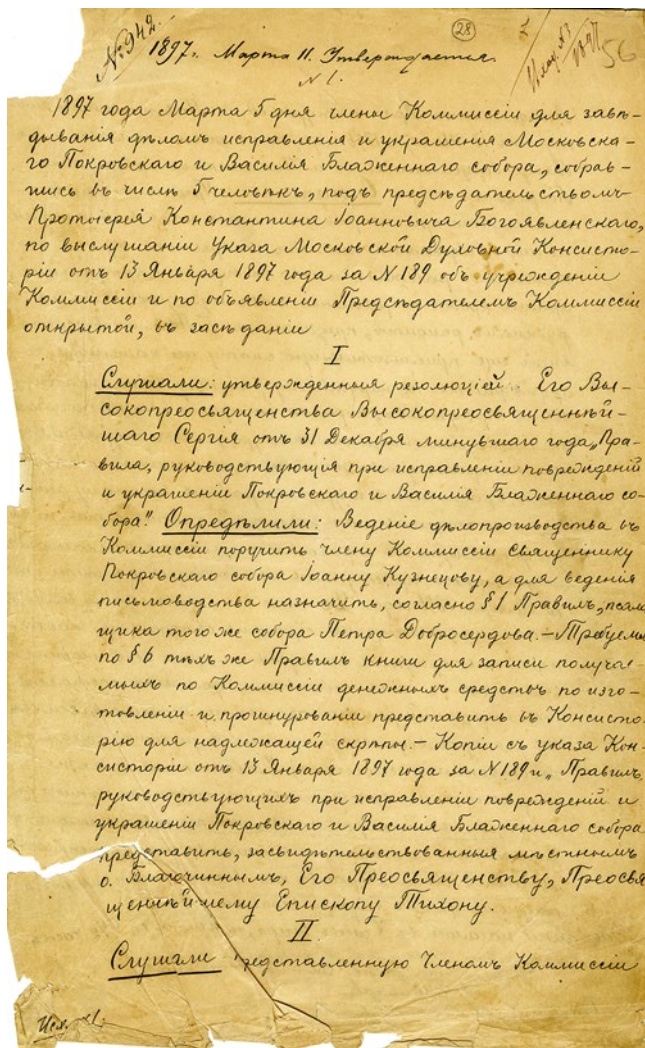 № 942.
28
56
1897 г. Марта 11. Утверждается.
№ 1.
1897 года Марта 5 дня члены Коммиссіи для завѣ-
дыванія дѣломъ исправленія и украшенія Московска-
го Покровскаго и Василія Блаженнаго собора, собрав-
шись въ числѣ 5 человѣкъ, подъ предсѣдательствомъ
Протоіерея Константина Іоанновича Богоявленскаго,
по выслушаніи Указа Московской Духовной Консисто-
ріи отъ 13 Января 1897 года за № 189 объ учрежденіи
Коммиссіи и по объявленіи Предсѣдателемъ Коммиссіи
открытой, въ засѣданіи
I
Слушали: утвержденныя резолюціей Его Вы-
сокопреосвященства Высокопреосвященнѣй-
шаго Сергія отъ 31 Декабря минувшаго года „Пра-
вила, руководствующія при исправленіи поврежденій
и украшеніи Покровскаго и Василія Блаженнаго со-
бора." Опредѣлили: Веденіе дѣлопроизводства въ
Коммиссіи поручить члену Коммиссіи Священнику
Покровскаго собора Іоанну Кузнецову, а для веденія
письмоводства назначить, согласно § 1 Правилъ, псалом
щика того же собора Петра Добросердова. — Требуемыя
по § 6 тѣхъ же Правилъ книги для записи получае-
мыхъ по Коммиссіи денежныхъ средствъ по изго-
товленіи и прошнурованіи представить въ Консисто-
рію для надлежащей скрѣпы. — Копіи съ указа Кон-
систоріи отъ 13 Января 1897 года за № 189 и „Правилъ,
руководствующихъ при исправленіи поврежденій и
украшеніи Покровскаго и Василія Блаженнаго собора
представить, засвидѣтельствованныя мѣстнымъ
о. Благочиннымъ, Его Преосвященству, Преосвя
щеннѣйшему Епископу Тихону.
II
Слушали представленную Членомъ Коммиссіи